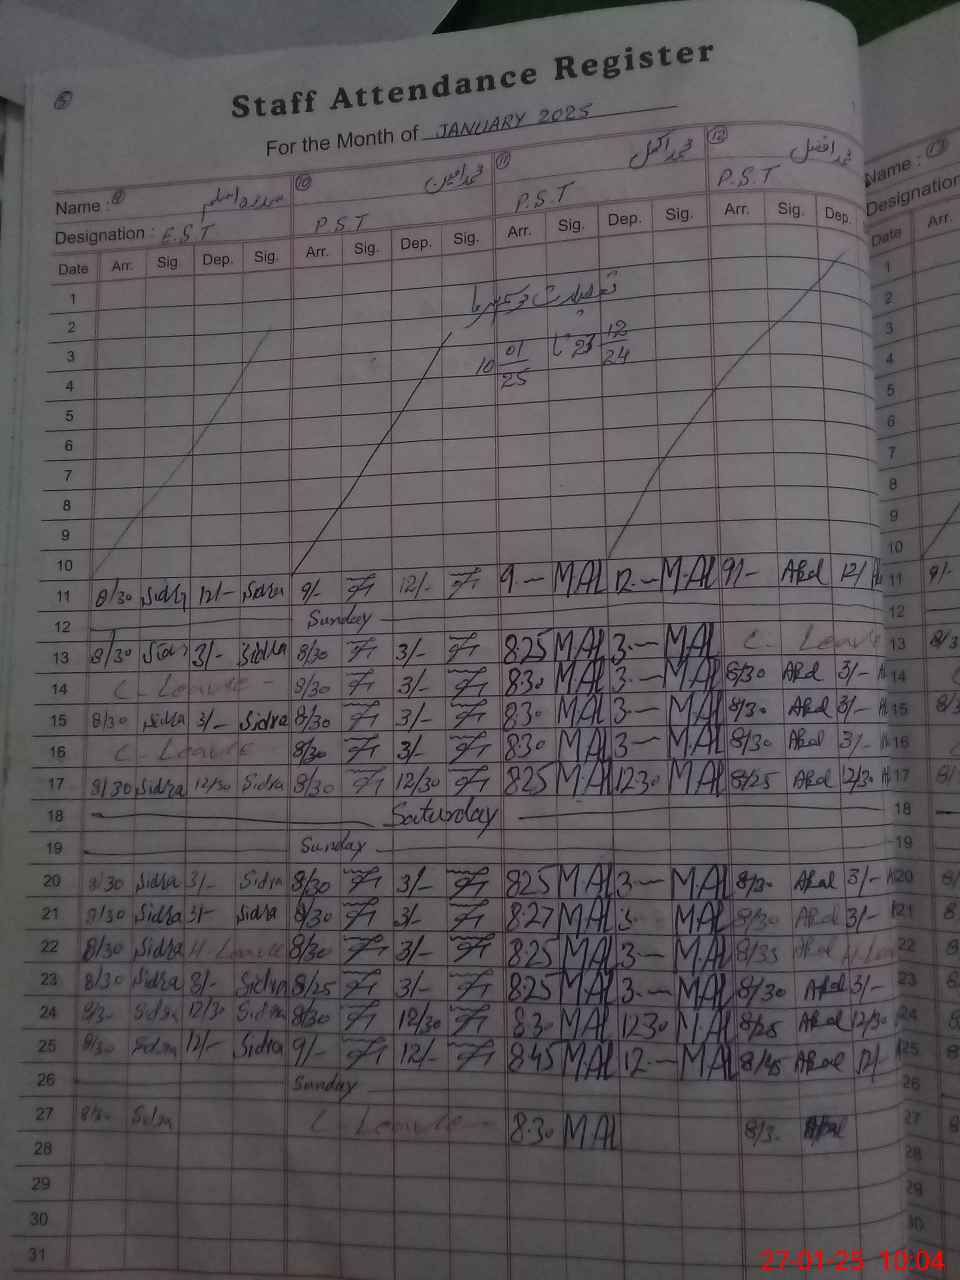 Staff Attendance Register
For the Month of JANUARY 2025
Name : 9 10 محمد امین 11 محمد اکمل 12 محمد افضل Name : 13
Designation : E.S.T P.S.T P.S.T P.S.T Designation
Date Arr. Sig Dep. Sig. Arr. Sig. Dep. Sig. Arr. Sig. Dep. Sig. Arr. Sig. Dep. Date Arr.
1 1
2 2
3 10 01/25 تا 23 12/24 3
4 4
5 5
6 6
7 7
8 8
9 9
10 10
11 8/30 Sidra 12/- Sidra 9/- 12/- 9.— MAL 12.— MAL 9/- Afzal 12/ 11 9/-
12 Sunday 12
13 8/30 3/- Sidra 8/30 3/- 8.25 MAL 3.— MAL C. Leave 13 8/3
14 C. Leave - 8/30 3/- 8.30 MAL 3.— MAL 8/30 Afzal 3/- 14
15 8/30 Sidra 3/- Sidra 8/30 3/- 8.30 MAL 3.— MAL 8/30 Afzal 3/- 15 8/3
16 C. Leave 8/30 3/- 8.30 MAL 3.— MAL 8/30 Afzal 3/- 16
17 8/30 Sidra 12/30 Sidra 8/30 12/30 8.25 MAL 12.30 MAL 8/25 Afzal 12/30 17 8/
18 Saturday 18
19 Sunday 19
20 8/30 Sidra 3/- Sidra 8/30 3/- 8.25 MAL 3.— MAL 8/30 Afzal 3/- 20 8/
21 8/30 Sidra 3/- Sidra 8/30 3/- 8.27 MAL 3. MAL 8/30 Afzal 3/- 21 8
22 8/30 Sidra H. Leave 8/30 3/- 8.25 MAL 3.— MAL 8/35 Afzal H. Lea 22 8
23 8/30 Sidra 3/- Sidra 8/25 3/- 8.25 MAL 3.— MAL 8/30 Afzal 3/- 23
24 8/30 Sidra 12/30 Sidra 8/30 12/30 8.30 MAL 12.30 MAL 8/25 Afzal 12/30 24
25 8/30 Sidra 12/- Sidra 9/- 12/- 8.45 MAL 12.— MAL 8/45 Afzal 12/- 25
26 Sunday 26
27 8/30 Sidra C. Leave 8.30 MAL 8/30 Afzal 27
28 28
29 29
30 30
31
27-01-25 10:04